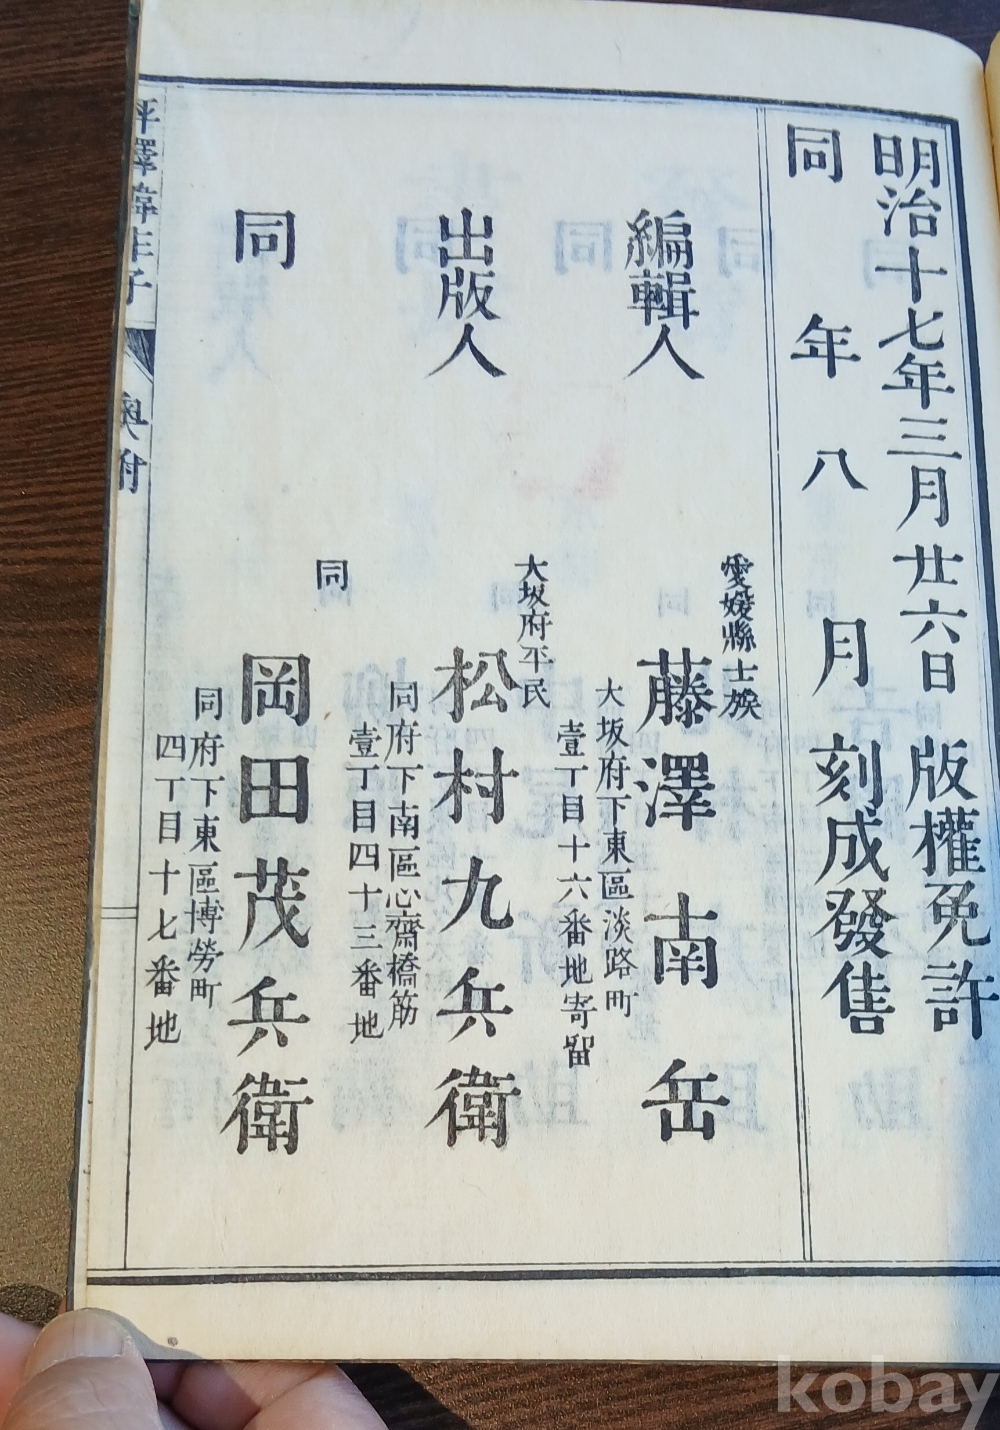 明治十七年三月廿六日版權免許
同年八月刻成發售
編輯人
愛媛縣士族
藤澤南岳
大坂府下東區淡路町
壹丁目十六番地寄留
出版人
大坂府平民
松村九兵衛
同府下南區心齋橋筋
壹丁目四十三番地
同
同
岡田茂兵衛
同府下東區博勞町
四丁目十七番地
評釋韓非子
奥附
kobay